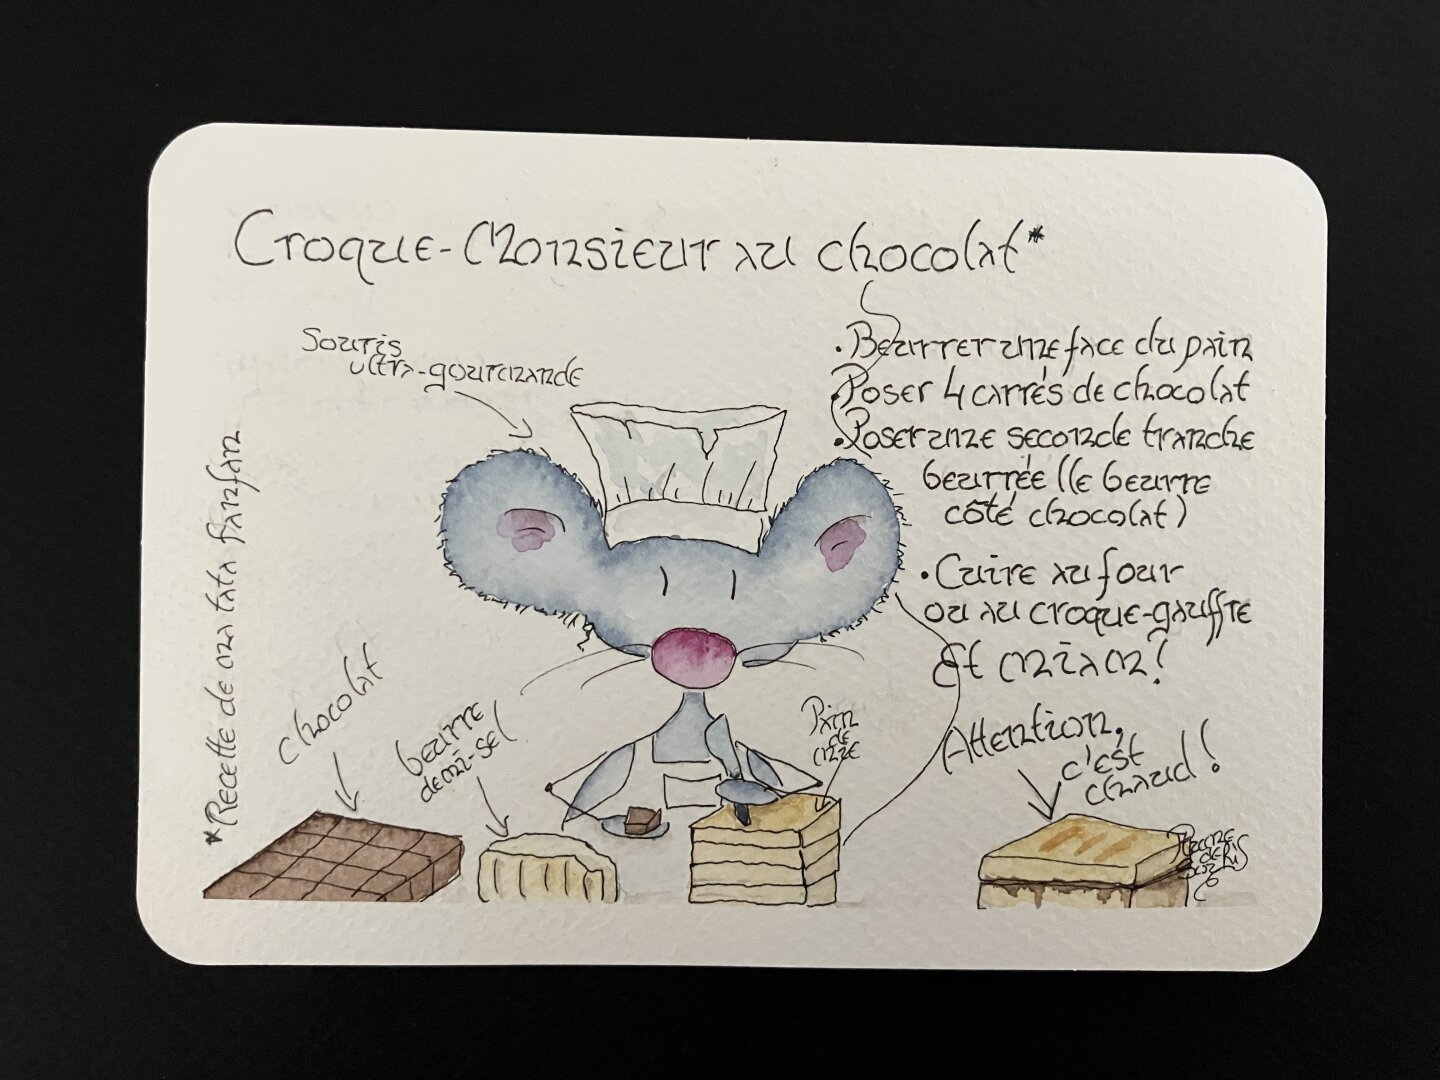 Croque-Monsieur au chocolat*
Souris
ultra-gourmande
• Beurrer une face du pain
• Poser 4 carrés de chocolat
• Poser une seconde tranche
beurrée (le beurre
côté chocolat)
• Cuire au four
ou au croque-gauffre
Et miam !
*Recette de ma tata fanfan
chocolat
beurre
demi-sel
Pain
de
mie
Attention,
c'est
chaud !
Plume
de